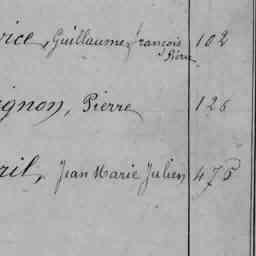 vice, Guillaume François 102
Pierre
ignon, Pierre 126
ril, Jean Marie Julien 475